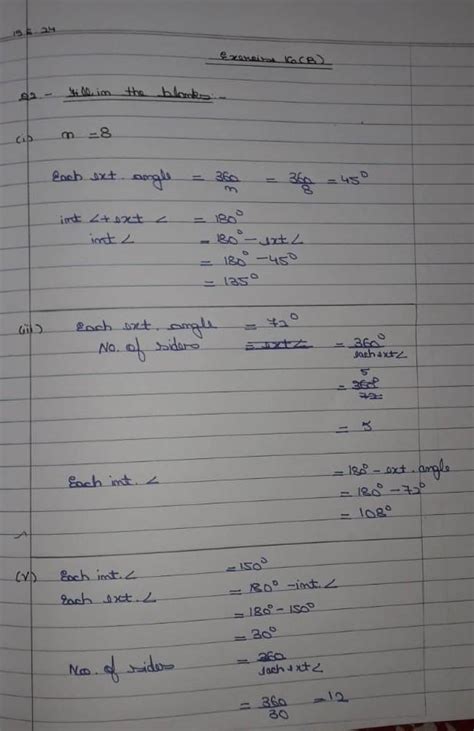 19.6.24
Exercise 10(B)
Q2 - Fill in the blanks -
(i) n = 8
Each ext. angle = 360/n = 360/8 = 45°
int ∠ + ext ∠ = 180°
int ∠ = 180° - ext ∠
= 180° - 45°
= 135°
(iii) Each ext. angle = 72°
No. of sides = ext ∠ = 360°/each ext ∠
5
= 360°/72
= 5
Each int. ∠ = 180° - ext. angle
= 180° - 72°
= 108°
(v) Each int. ∠ = 150°
Each ext. ∠ = 180° - int. ∠
= 180° - 150°
= 30°
No. of sides = 360/each ext ∠
= 360/30 = 12